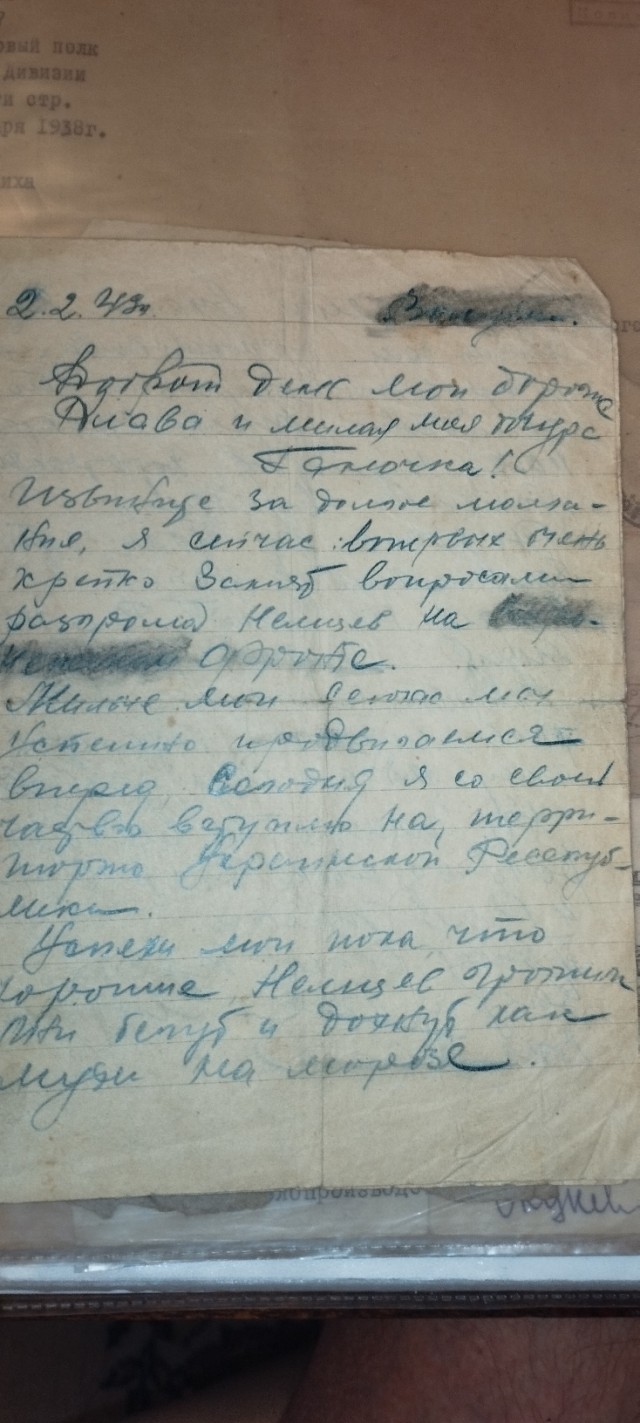 овый полк
дивизии
стр.
ря 1938г.
иха
2.2.43г.
день мои дороги
Клава и милая моя
Геночка!
Извините за долгое молча-
ния, я сейчас впервых очень
крепко занят вопросами
разгрома Немцев на
фронте.
Милые мои
Успешно продвигаемся
вперед, Сегодня я со свои
вступлю на терри-
торию Украинской Респуб-
лики.
Успехи мои пока, что
хорошие, Немцев громим
Они бегут и дохнут как
мухи на морозе.